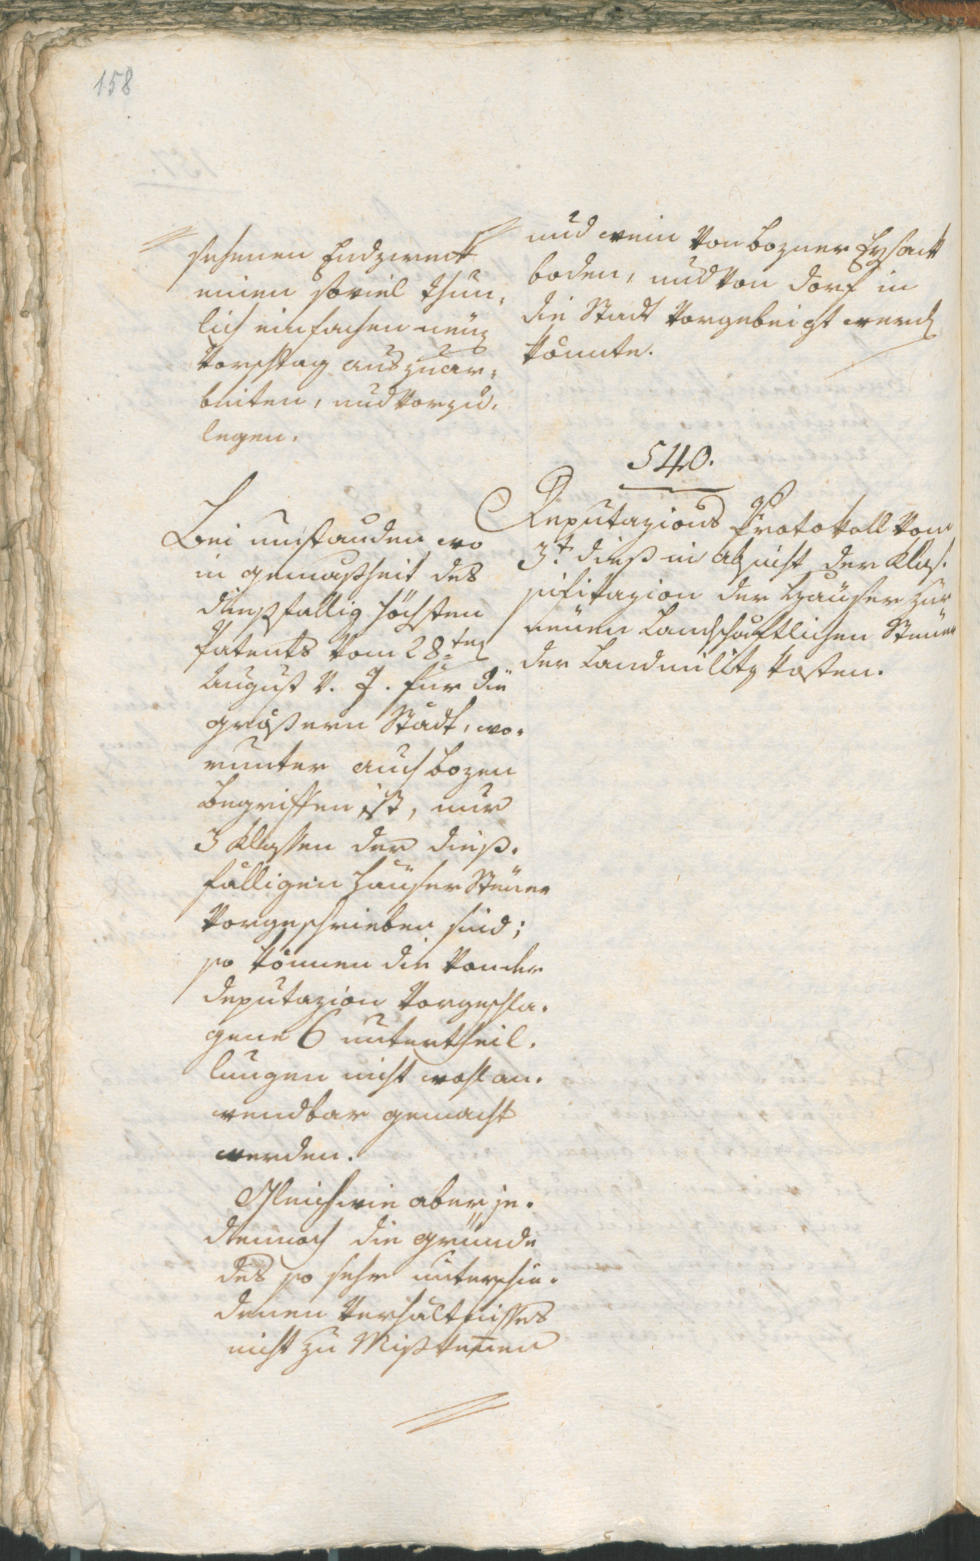 158
sehenen Endzweck
einen soviel thun¬
lich einfachen neüen
Vorschlag auszuar¬
beiten, und vorzu¬
legen.
Bei umstanden wo
in gemäßheit des
dießfällig höchsten
Patents vom 28ten
August v. J. für die
größern Städt, wo¬
runter auch Bozen
begriffen ist, nur
3 Klassen der dieß¬
fälligen Häuser Steüer
vorgeschrieben sind;
so können die von der
Deputazion vorgeschla¬
gene 6 untertheil¬
lungen nicht wohl an¬
wendbar gemacht
werden.
Gleichwie aber je¬
dennoch die gründe
des so sehr unterschie¬
denen Verhältnisses
nicht zu Mißkennen
und wein von Bozner
boden, und von Dorf in
die Stadt vorgebeigt werden
könnte.
540.
Deputazions Protokoll vom
3t. dieß in Absicht der Klas¬
sifikazion der Häuser zur
neüen Landschaftlichen Steüer
der Landmilitz kosten.